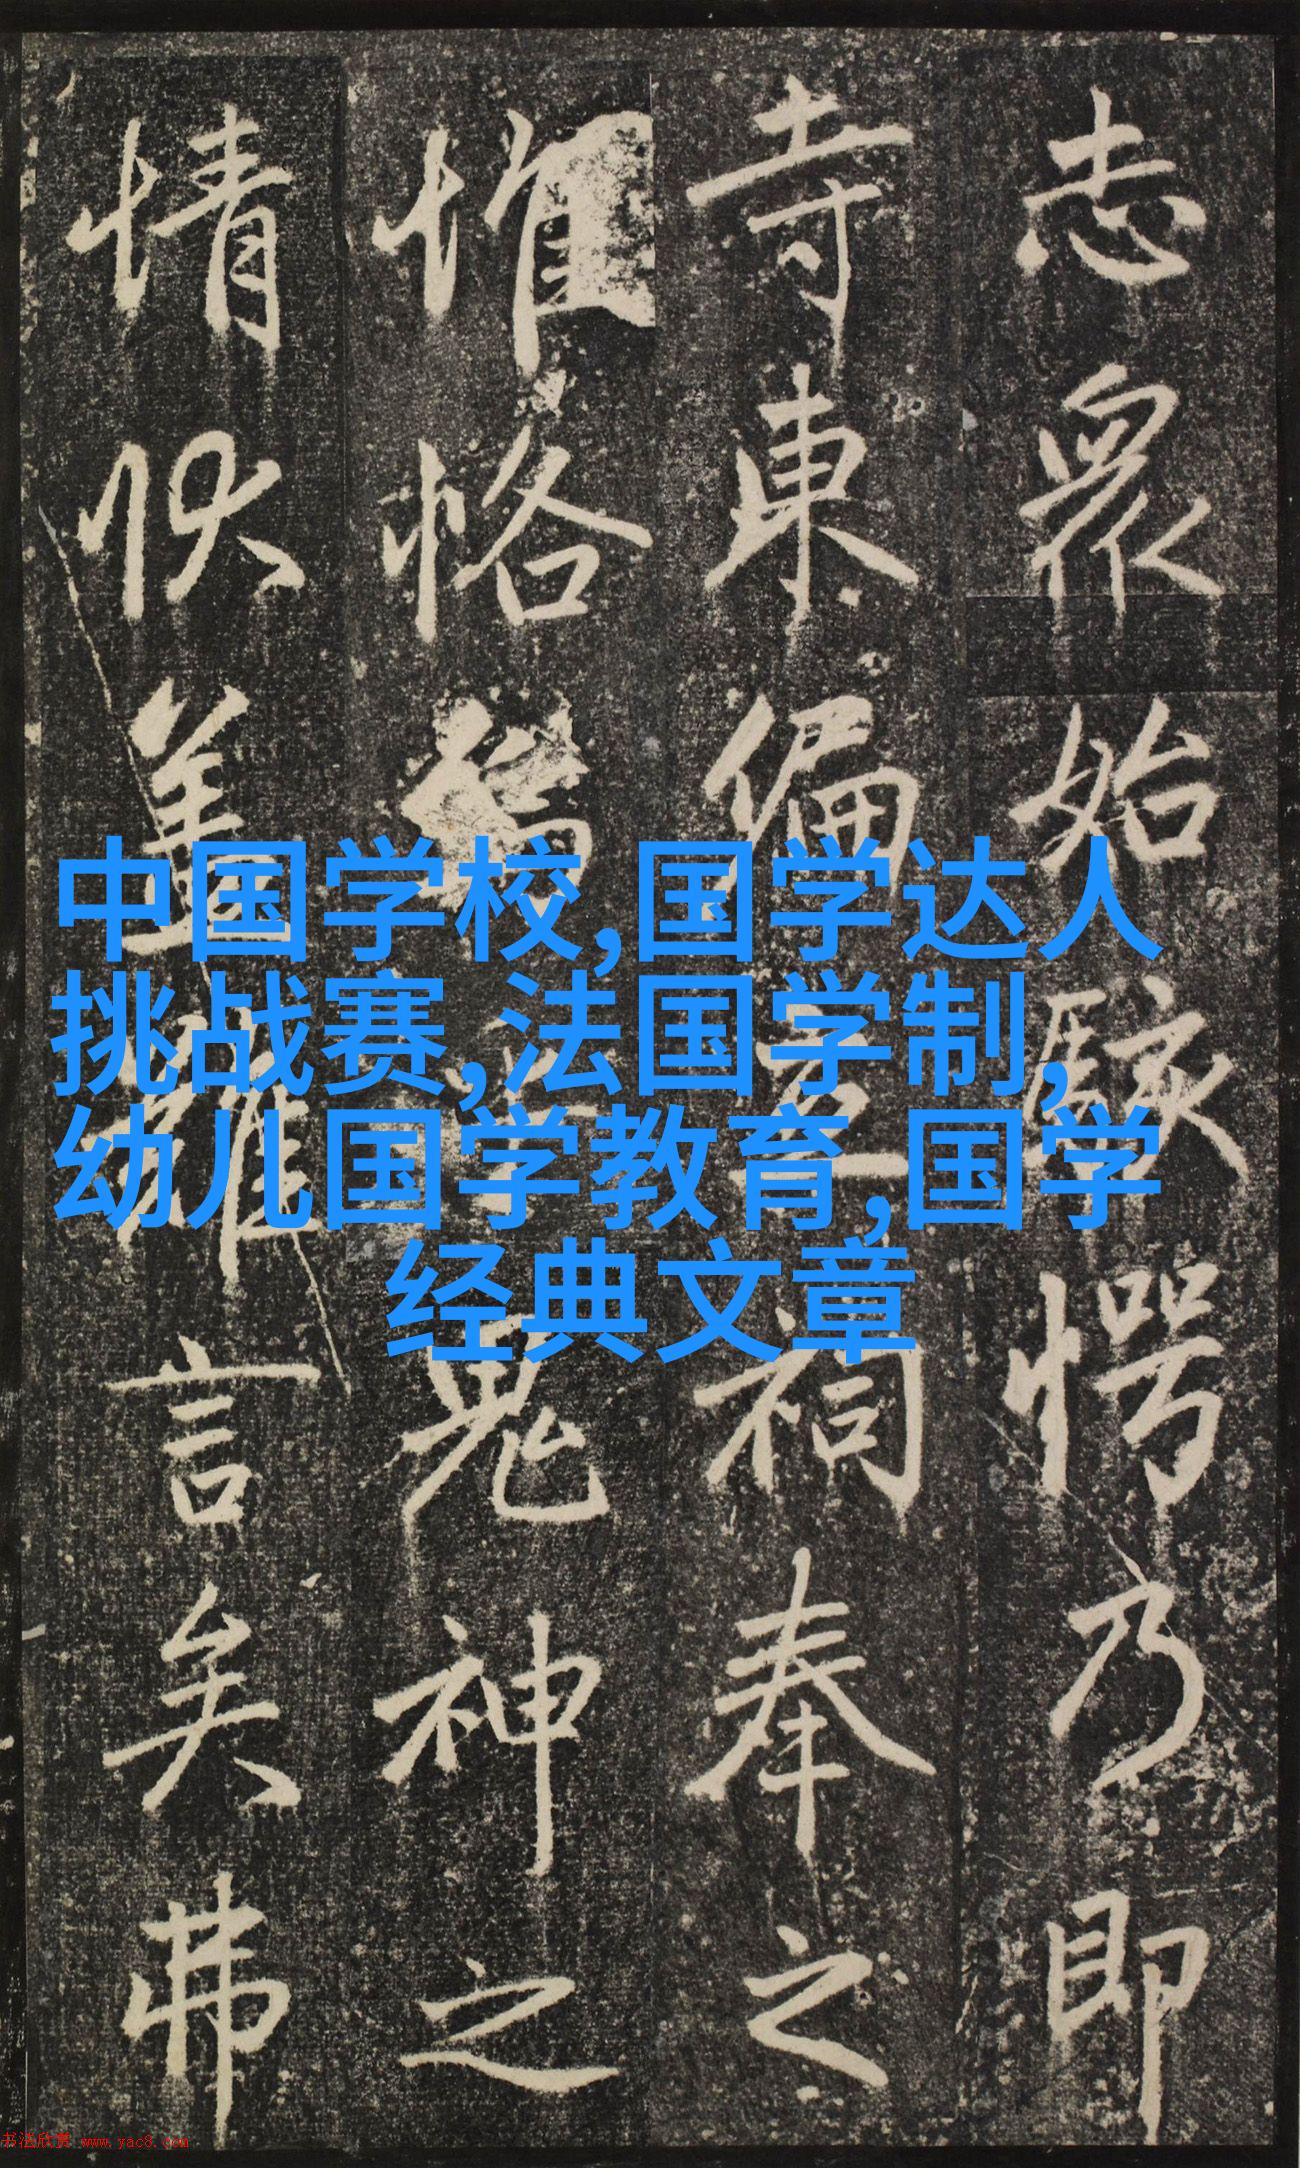 志眾始駭愕乃即
寺東偏立祠奉之
惟恪鬼神之
情狀蓋難言矣弗
中国学校,国学达人
挑战赛,法国学制,
幼儿国学教育,国学
经典文章
书法欣赏 www.yac8.com